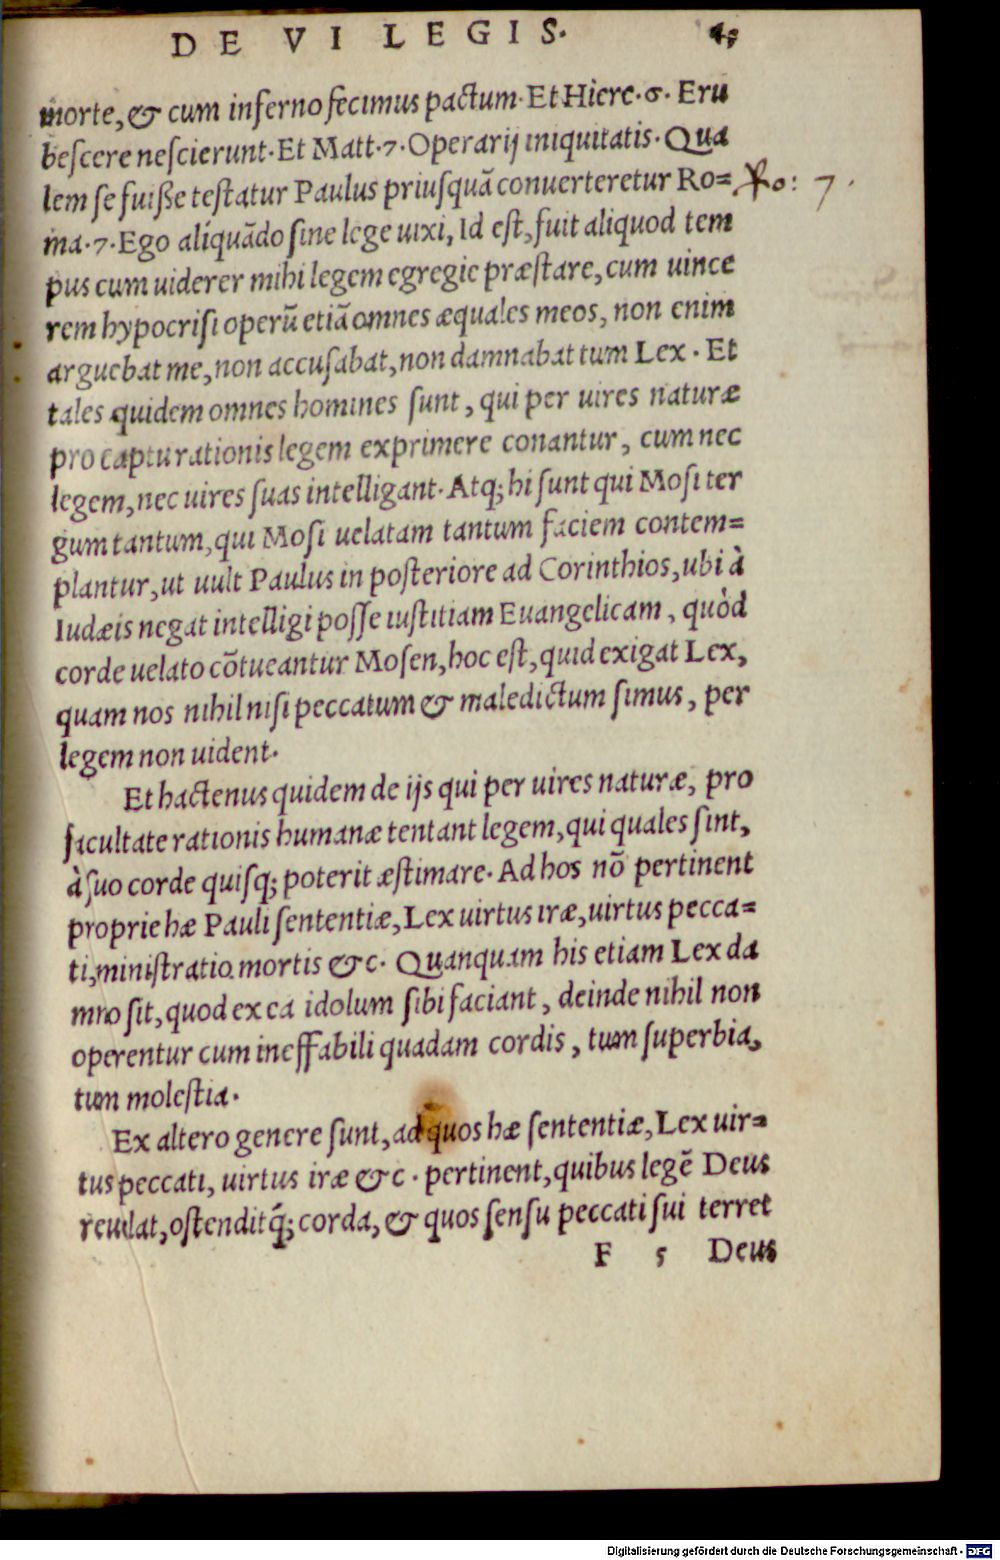 DE VI LEGIS. 45
morte, & cum inferno fecimus pactum. Et Hiere. 6. Eru
bescere nescierunt. Et Matt. 7. Operarij iniquitatis. Qua
lem se fuiße testatur Paulus priusquã conuerteretur Ro= Ro: 7.
ma. 7. Ego aliquãdo sine lege uixi, Id est, fuit aliquod tem
pus cum uiderer mihi legem egregie præstare, cum uince
rem hypocrisi operũ etiã omnes æquales meos, non enim
arguebat me, non accusabat, non damnabat tum Lex. Et
tales quidem omnes homines sunt, qui per uires naturæ
pro captu rationis legem exprimere conantur, cum nec
legem, nec uires suas intelligant. Atq; hi sunt qui Mosi ter
gum tantum, qui Mosi uelatam tantum faciem contem=
plantur, ut uult Paulus in posteriore ad Corinthios, ubi à
Iudæis negat intelligi posse iustitiam Euangelicam, quòd
corde uelato cõtueantur Mosen, hoc est, quid exigat Lex,
quam nos nihil nisi peccatum & maledictum simus, per
legem non uident.
Et hactenus quidem de ijs qui per uires naturæ, pro
facultate rationis humanæ tentant legem, qui quales sint,
à suo corde quisq; poterit æstimare. Ad hos nõ pertinent
proprie hæ Pauli sententiæ, Lex uirtus iræ, uirtus pecca=
ti, ministratio mortis &c. Quanquam his etiam Lex da
mno sit, quod ex ea idolum sibi faciant, deinde nihil non
operentur cum ineffabili quadam cordis, tum superbia,
tum molestia.
Ex altero genere sunt, ad quos hæ sententiæ, Lex uir=
tus peccati, uirtus iræ &c. pertinent, quibus legẽ Deus
reuelat, ostenditq́; corda, & quos sensu peccati sui terret
F 5 Deus
Digitalisierung gefördert durch die Deutsche Forschungsgemeinschaft - DFG